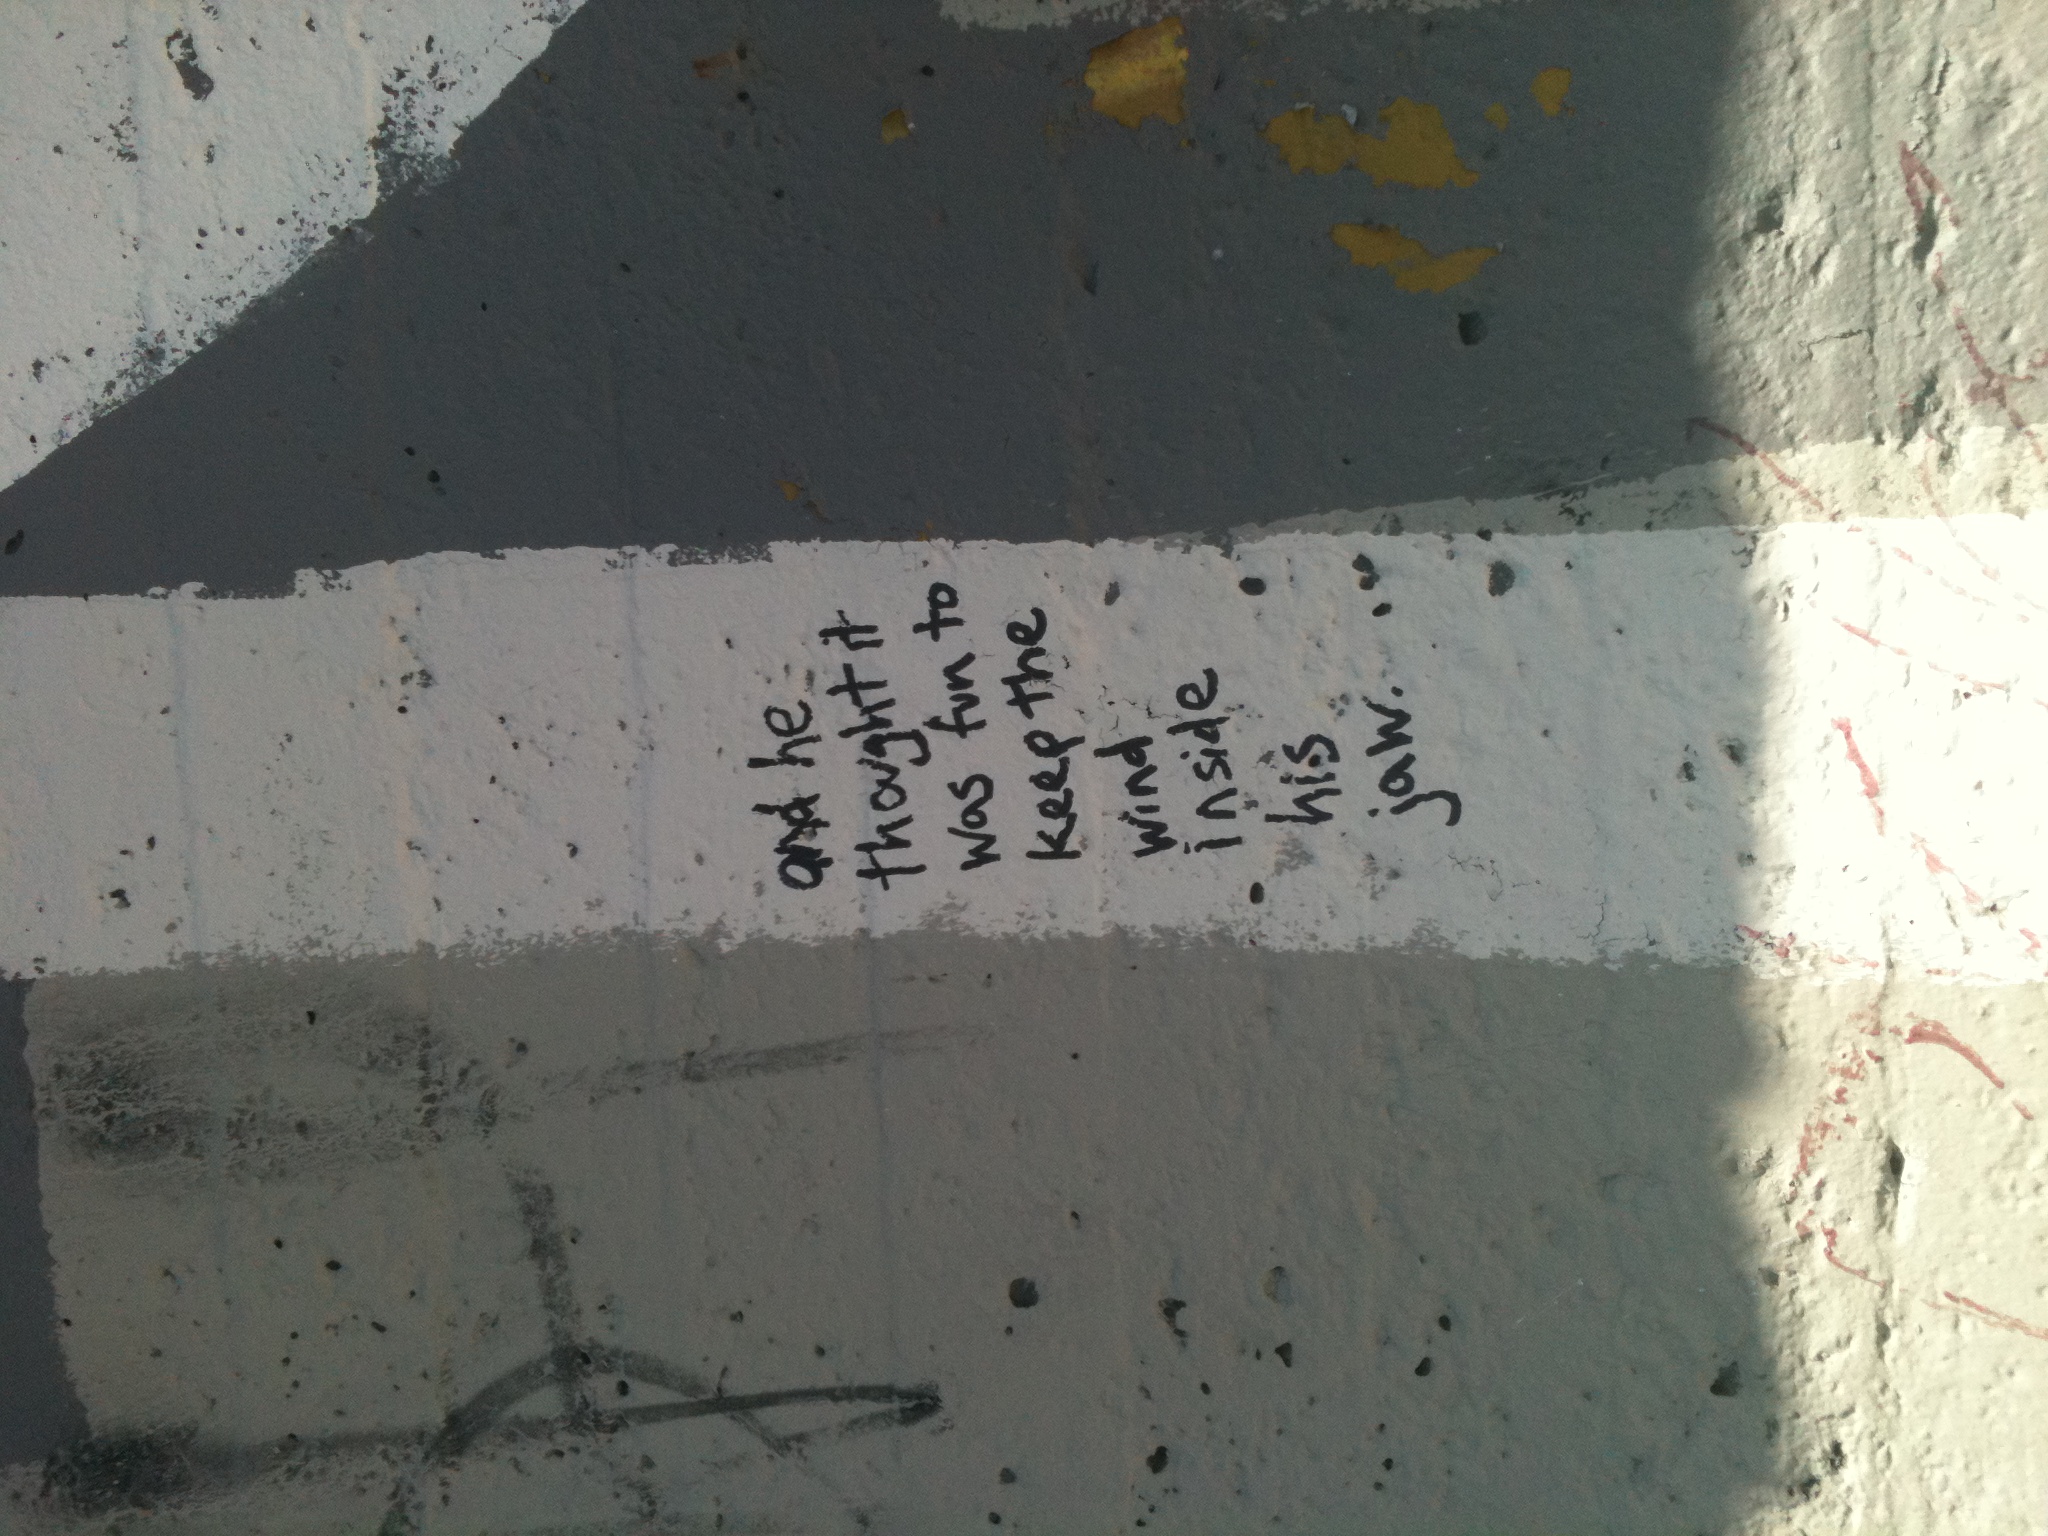 and he
thought it
was fun to
keep the
wind
inside
his
jaw.